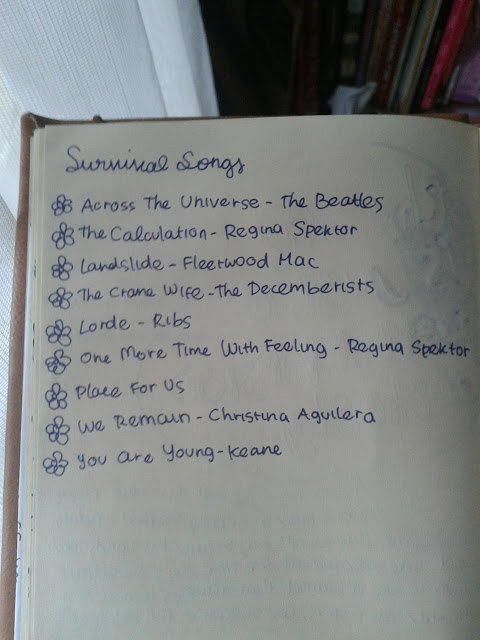 Survival Songs
Across The Universe - The Beatles
The Calculation - Regina Spektor
Landslide - Fleetwood Mac
The Crane Wife - The Decemberists
Lorde - Ribs
One More Time With Feeling - Regina Spektor
Place For Us
We Remain - Christina Aguilera
You are Young - Keane